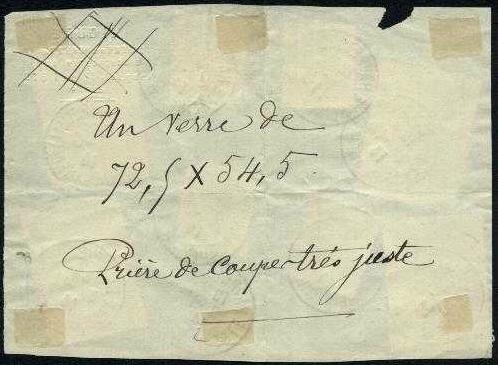 Un verre de
72,5 X 54,5.
Prière de couper très juste